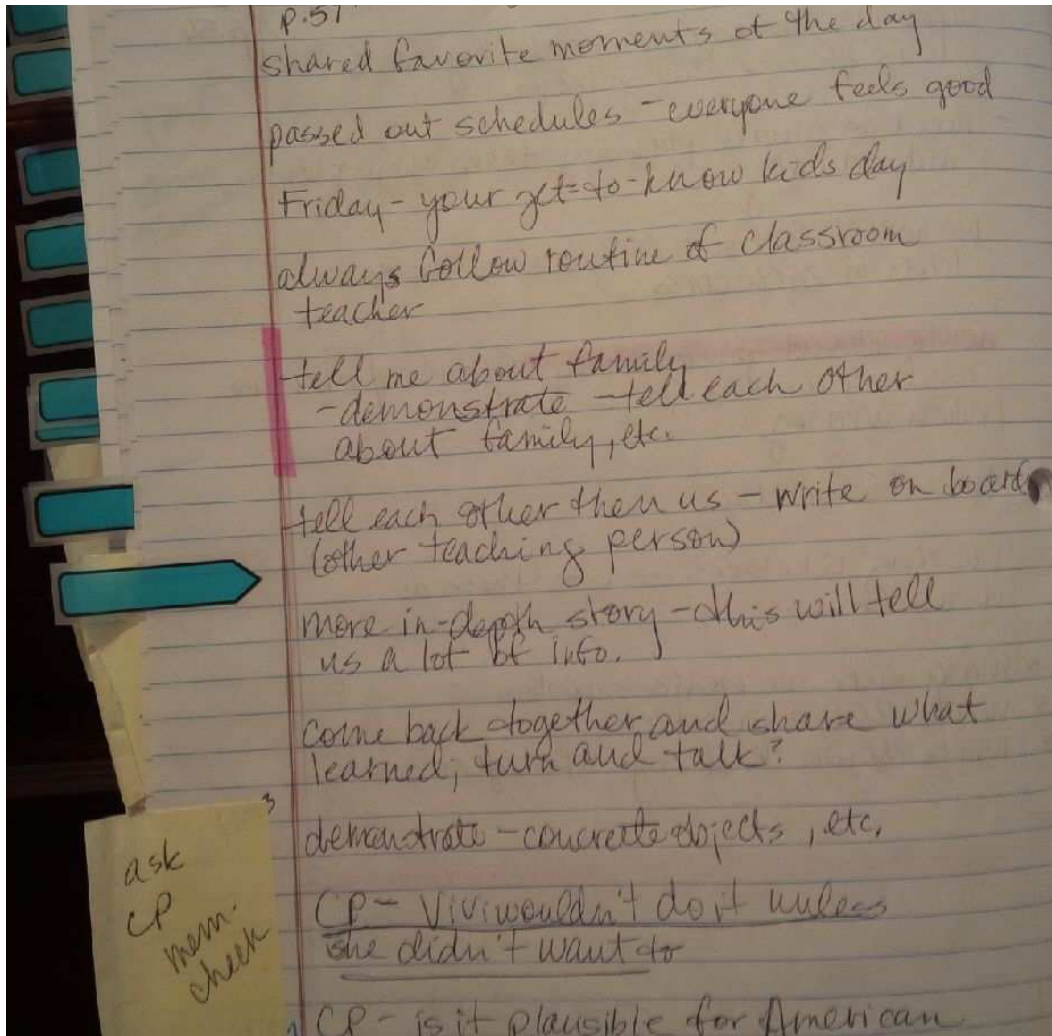 p.57
shared favorite moments of the day
passed out schedules - everyone feels good
Friday - your get-to-know kids day
always follow routine of classroom
teacher
tell me about family
- demonstrate - tell each other
about family, etc.
tell each other then us - write on board
(other teaching person)
more in-depth story - this will tell
us a lot of info.
come back together and share what
learned; turn and talk?
demonstrate - concrete objects, etc.
CP - Vivi wouldn't do it unless
she didn't want to
CP - is it plausible for American
3
ask
CP
mem.
check